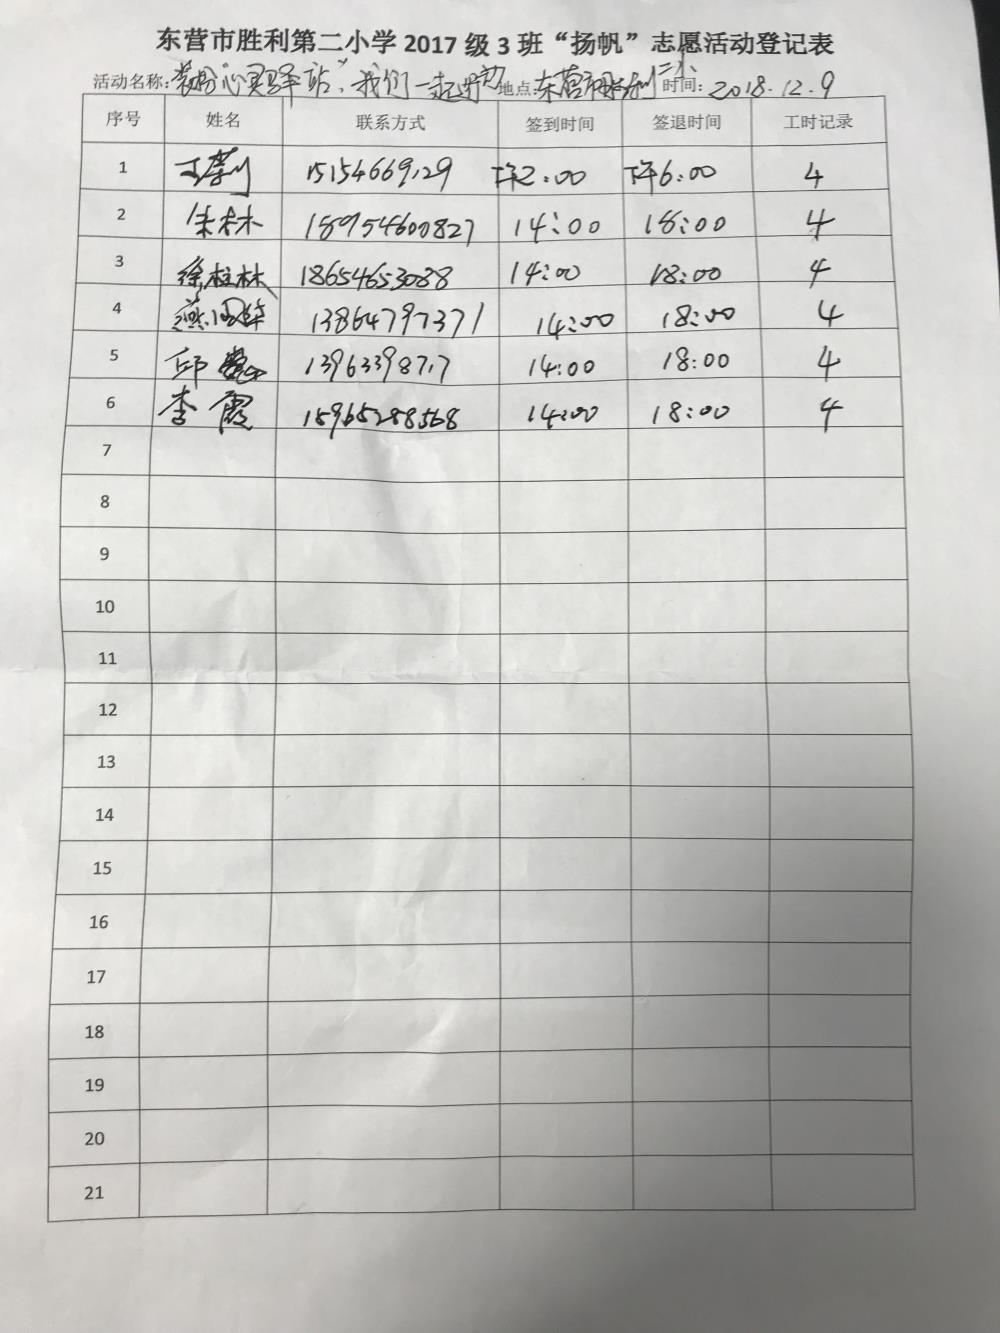 东营市胜利第二小学2017级3班“扬帆”志愿活动登记表
活动名称：装扮“心灵驿站”，我们一起行动 地点：东营市胜利二小 时间：2018.12.9
序号 姓名 联系方式 签到时间 签退时间 工时记录
1 15154669129 下午2:00 下午6:00 4
2 朱林 18954600827 14:00 18:00 4
3 徐桂林 18654653088 14:00 18:00 4
4 13864797371 14:00 18:00 4
5 邱 14:00 18:00 4
6 李霞 15965288568 14:00 18:00 4
7
8
9
10
11
12
13
14
15
16
17
18
19
20
21